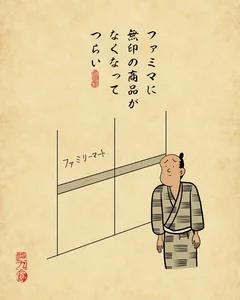 ファミマに
無印の商品が
なくなって
つらい
ファミリーマート